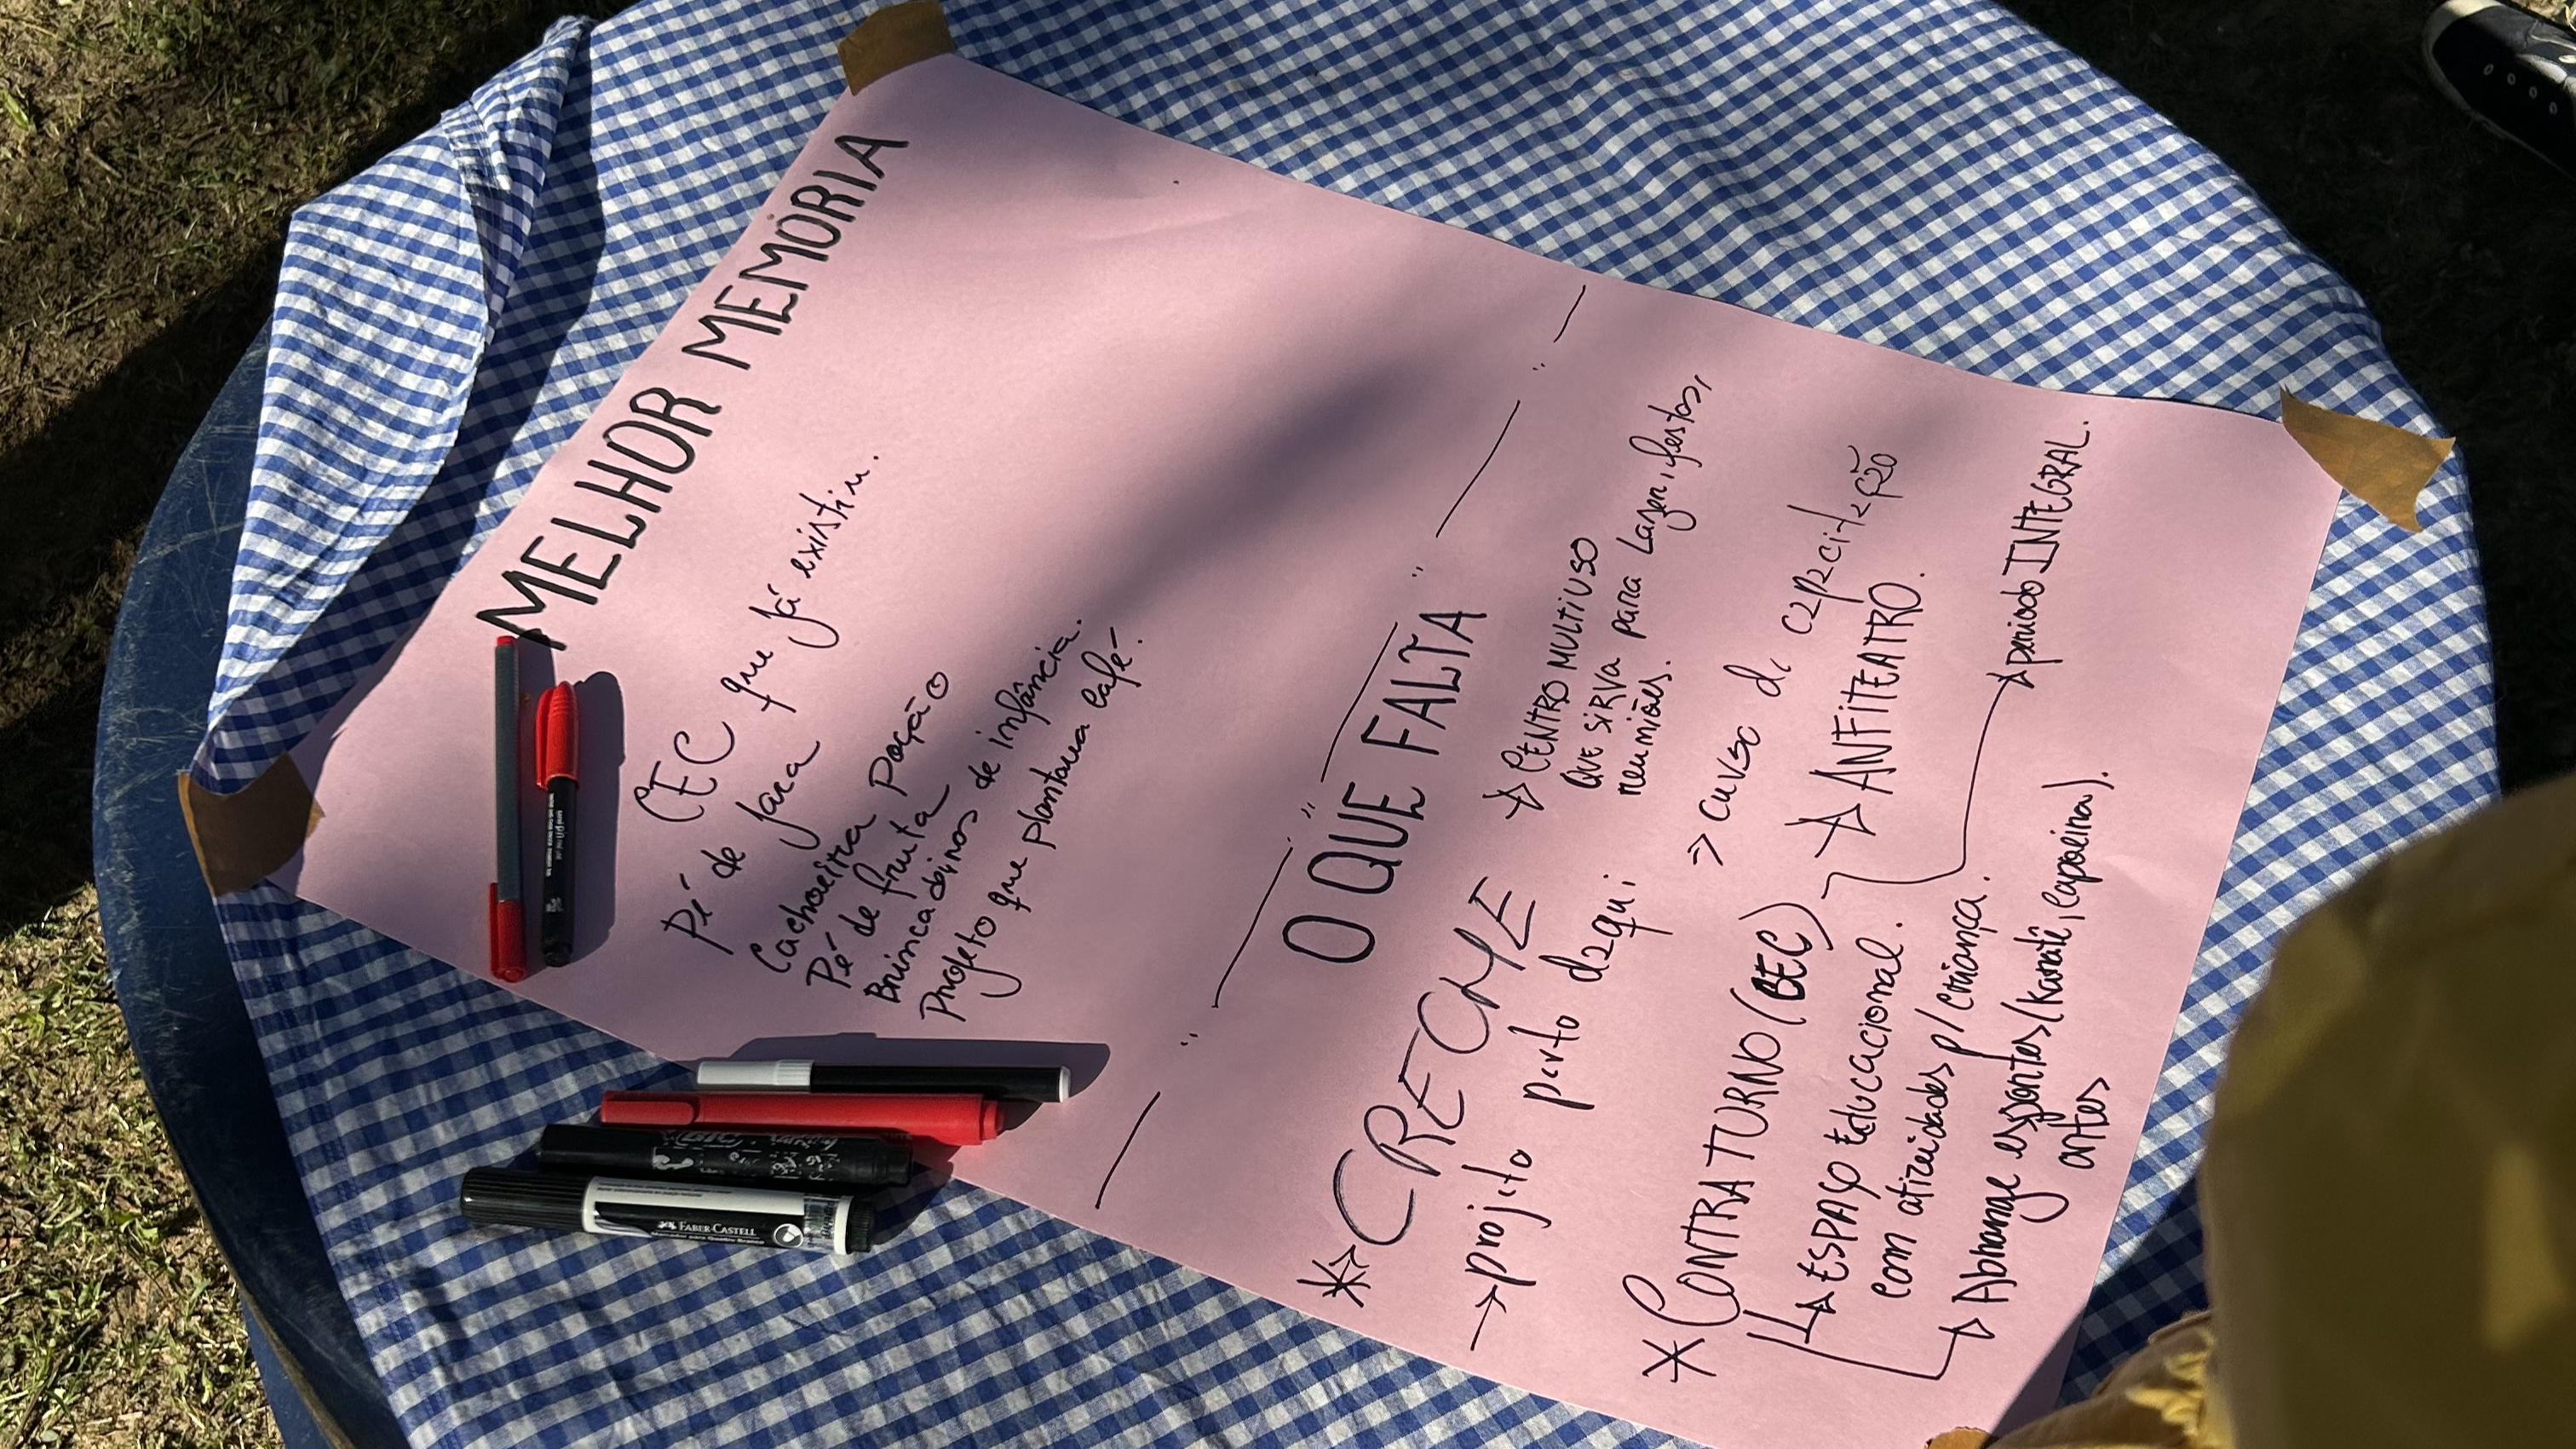 MELHOR MEMÓRIA
CEC que já existiu.
Pé de jaca
Cachoeira Poção
Pé de fruta
Brincadeiras de infância.
Projeto que plantava café.
O QUE FALTA
* CRECHE
→ projeto perto daqui
→ CENTRO MULTIUSO
QUE SIRVA para Lazer, festas,
reuniões.
→ curso de capacitação
→ ANFITEATRO.
* CONTRATURNO (CEC)
→ período INTEGRAL.
→ ESPAÇO Educacional.
com atividades p/ criança.
→ Abrange esportes (Karatê, Capoeira).
artes
FABER-CASTELL
BIC